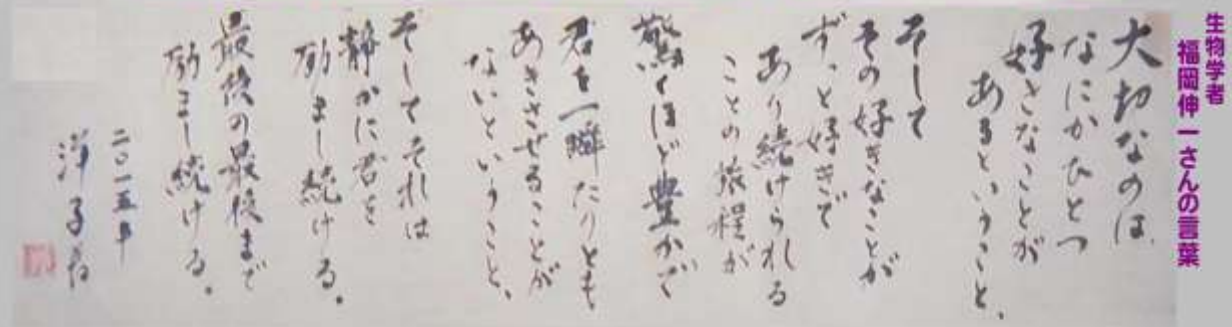 生物学者
福岡伸一さんの言葉
大切なのは、
なにかひとつ
好きなことが
あるということ、
そして
その好きなことが
ずっと好きで
あり続けられる
ことの旅程が
驚くほど豊かで
君を一瞬たりとも
あきさせることが
ないということ、
そしてそれは
静かに君を
励まし続ける。
最後の最後まで
励まし続ける。
二〇一五年
洋子